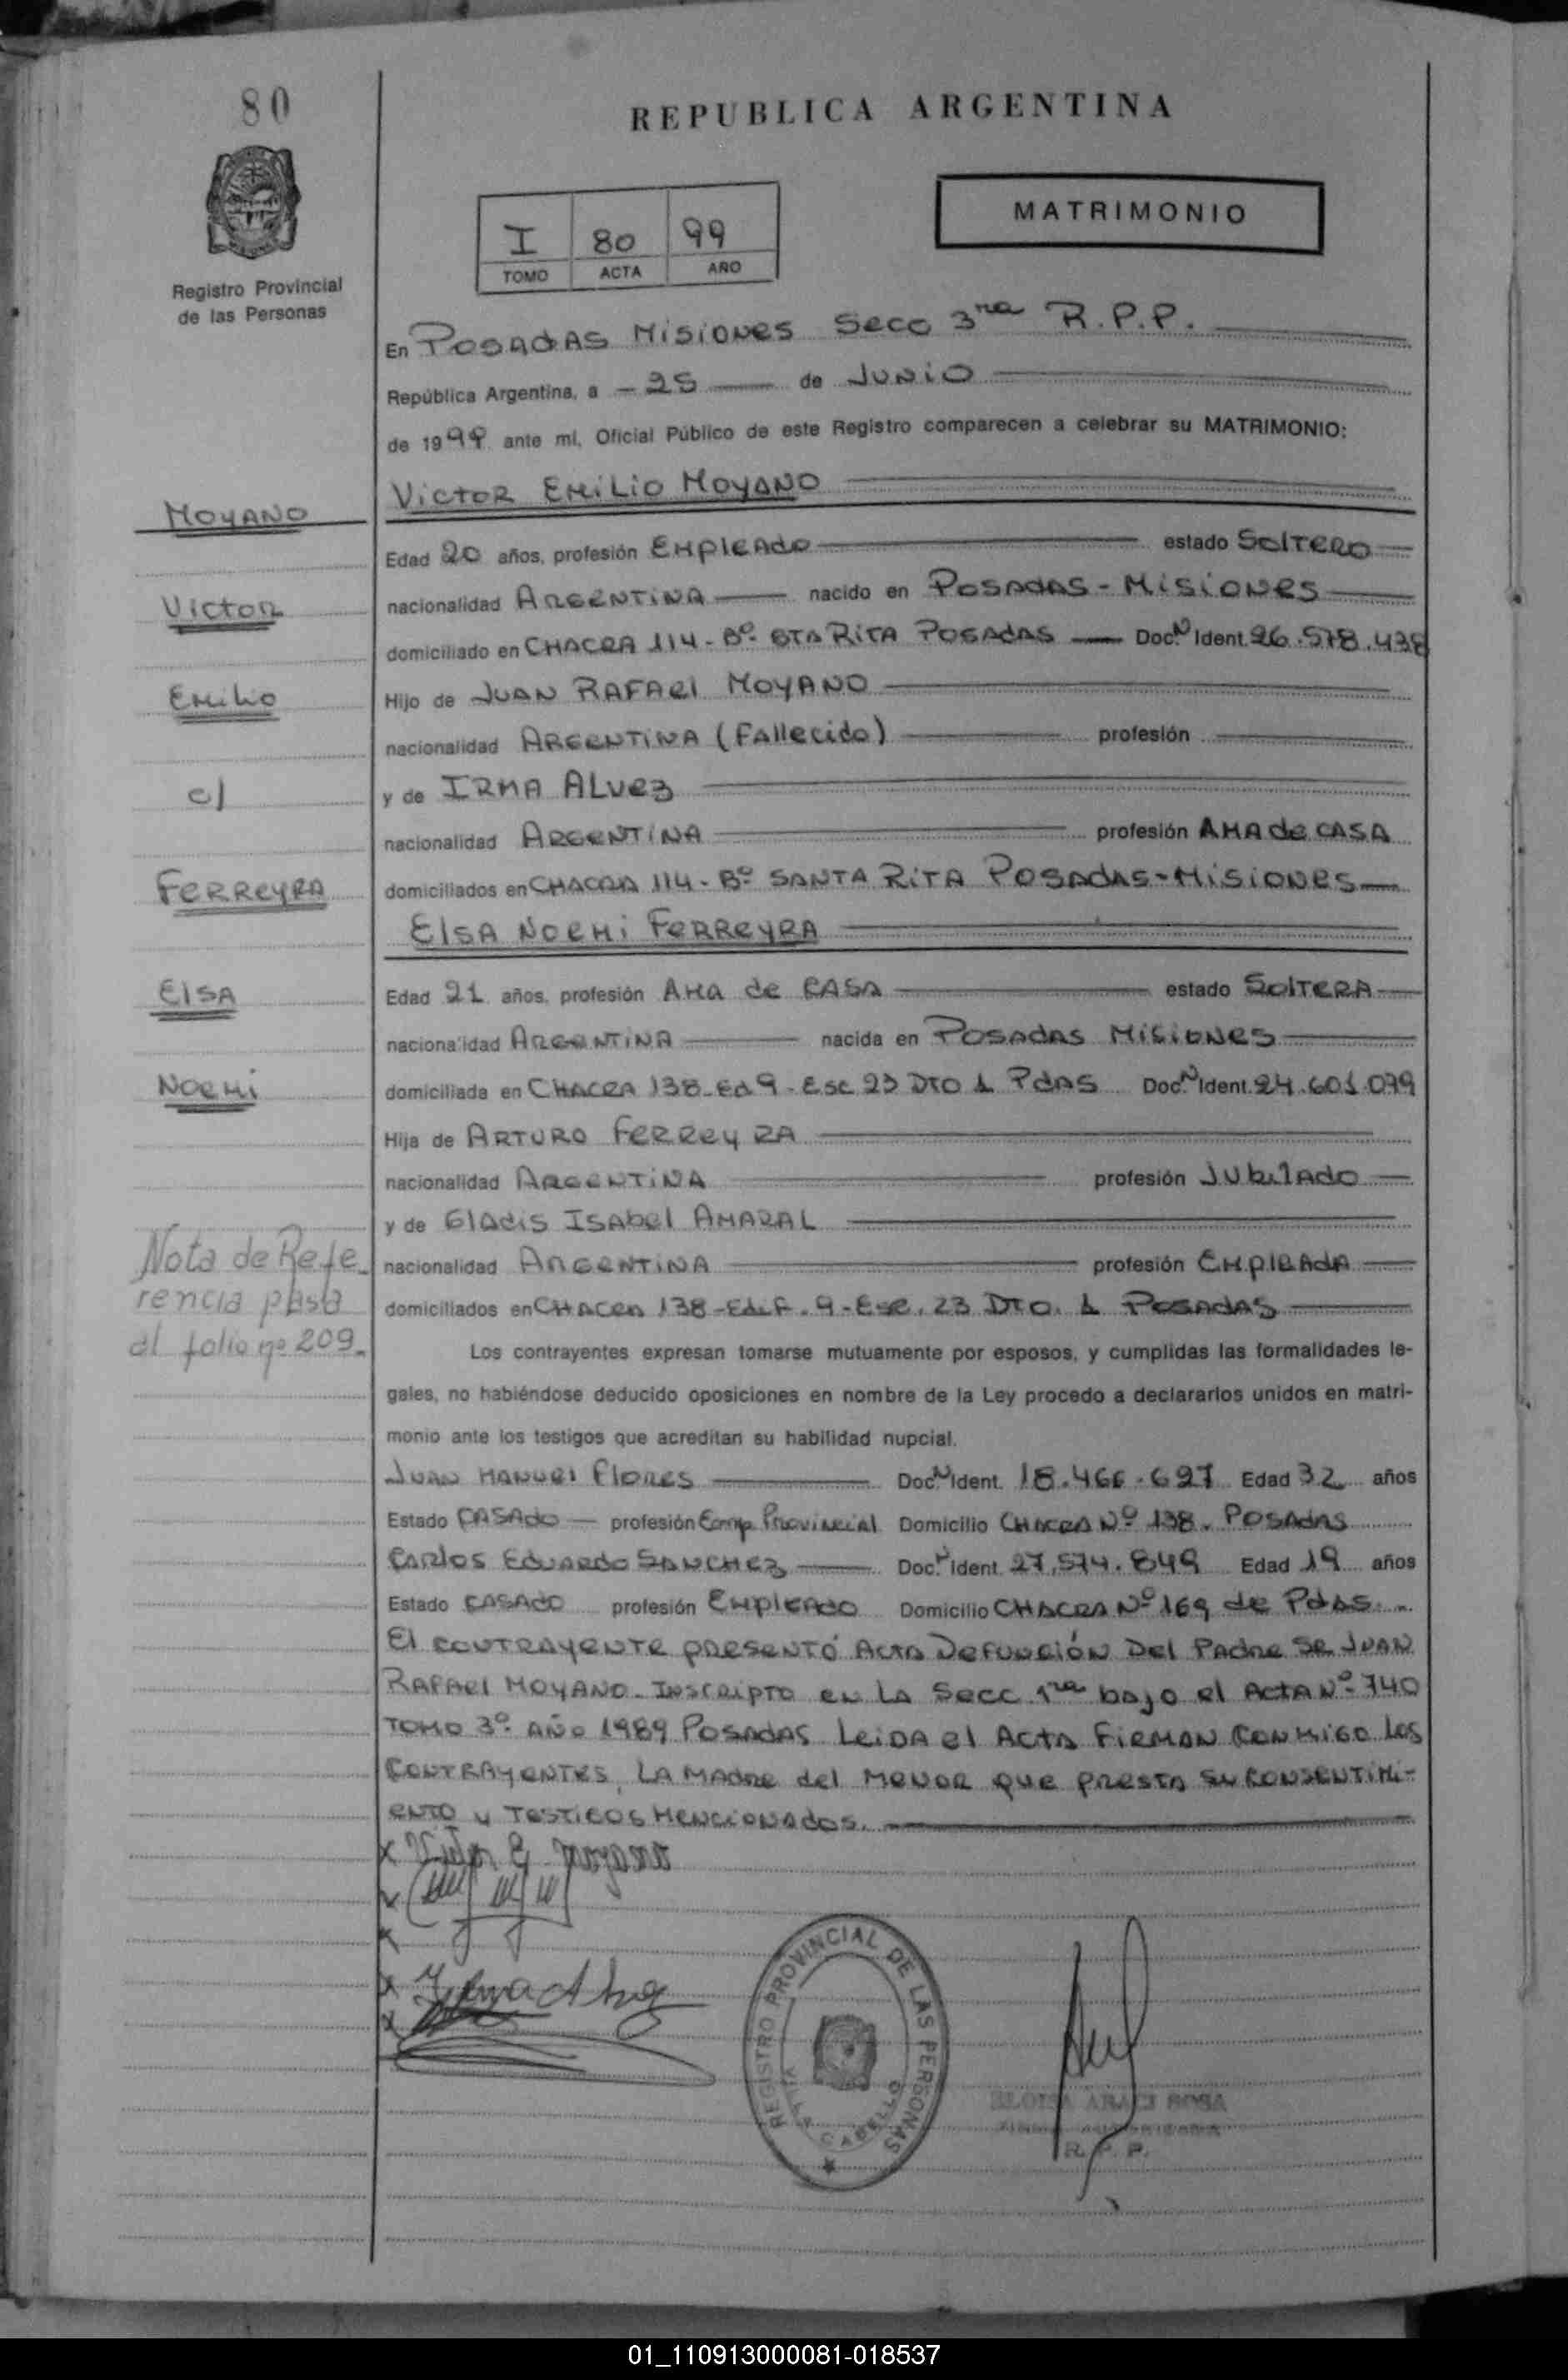 80
REPUBLICA ARGENTINA
MATRIMONIO
I 80 99
TOMO ACTA AÑO
Registro Provincial
de las Personas
En POSADAS MISIONES Secc 3ra R.P.P.
República Argentina, a - 25 de JUNIO
de 1999 ante mí, Oficial Público de este Registro comparecen a celebrar su MATRIMONIO:
VICTOR EMILIO MOYANO
MOYANO
Edad 20 años, profesión EMPLEADO estado SOLTERO
VICTOR
nacionalidad ARGENTINA nacido en POSADAS - MISIONES
domiciliado en CHACRA 114 - Bº STA RITA POSADAS Doc.N Ident. 26.578.438
EMILIO
Hijo de JUAN RAFAEL MOYANO
nacionalidad ARGENTINA (FALLECIDO) profesión
c/
y de IRMA ALVEZ
nacionalidad ARGENTINA profesión AMA de CASA
FERREYRA
domiciliados en CHACRA 114 - Bº SANTA RITA POSADAS - MISIONES
ELSA NOEMI FERREYRA
ELSA
Edad 21 años, profesión AMA de CASA estado SOLTERA
nacionalidad ARGENTINA nacida en POSADAS MISIONES
NOEMI
domiciliada en CHACRA 138 - Ed 9 - Esc 23 DTO 1 PdAS Doc.N Ident. 24.601.079
Hija de ARTURO FERREYRA
nacionalidad ARGENTINA profesión JUBILADO
y de GLADIS ISABEL AMARAL
Nota de Refe-
rencia pasa
al folio nº 209.
nacionalidad ARGENTINA profesión EMPLEADA
domiciliados en CHACRA 138 - Edif. 9 - Esc. 23 DTO. 1 POSADAS
Los contrayentes expresan tomarse mutuamente por esposos, y cumplidas las formalidades le-
gales, no habiéndose deducido oposiciones en nombre de la Ley procedo a declararlos unidos en matri-
monio ante los testigos que acreditan su habilidad nupcial.
JUAN MANUEL FLORES Doc.N Ident. 18.466.697 Edad 32 años
Estado CASADO profesión Emp Provincial Domicilio CHACRA Nº 138. POSADAS
CARLOS EDUARDO SANCHEZ Doc.N Ident. 27.574.849 Edad 19 años
Estado CASADO profesión EMPLEADO Domicilio CHACRA Nº 169 de PdAS.
El CONTRAYENTE PRESENTÓ ACTA DEFUNCIÓN DEL PADRE SR JUAN
RAFAEL MOYANO - INSCRIPTO EN LA SECC 1ra bajo el ACTA Nº 740
TOMO 3º AÑO 1989 POSADAS LEIDA el ACTA FIRMAN CONMIGO LOS
CONTRAYENTES, LA MADRE del MENOR QUE PRESTA SU CONSENTIMI-
ENTO y TESTIGOS MENCIONADOS.
x Victor E. Moyano
x
x
x Irma Alvez
x
REGISTRO PROVINCIAL DE LAS PERSONAS
R. P. P.
01_110913000081-018537